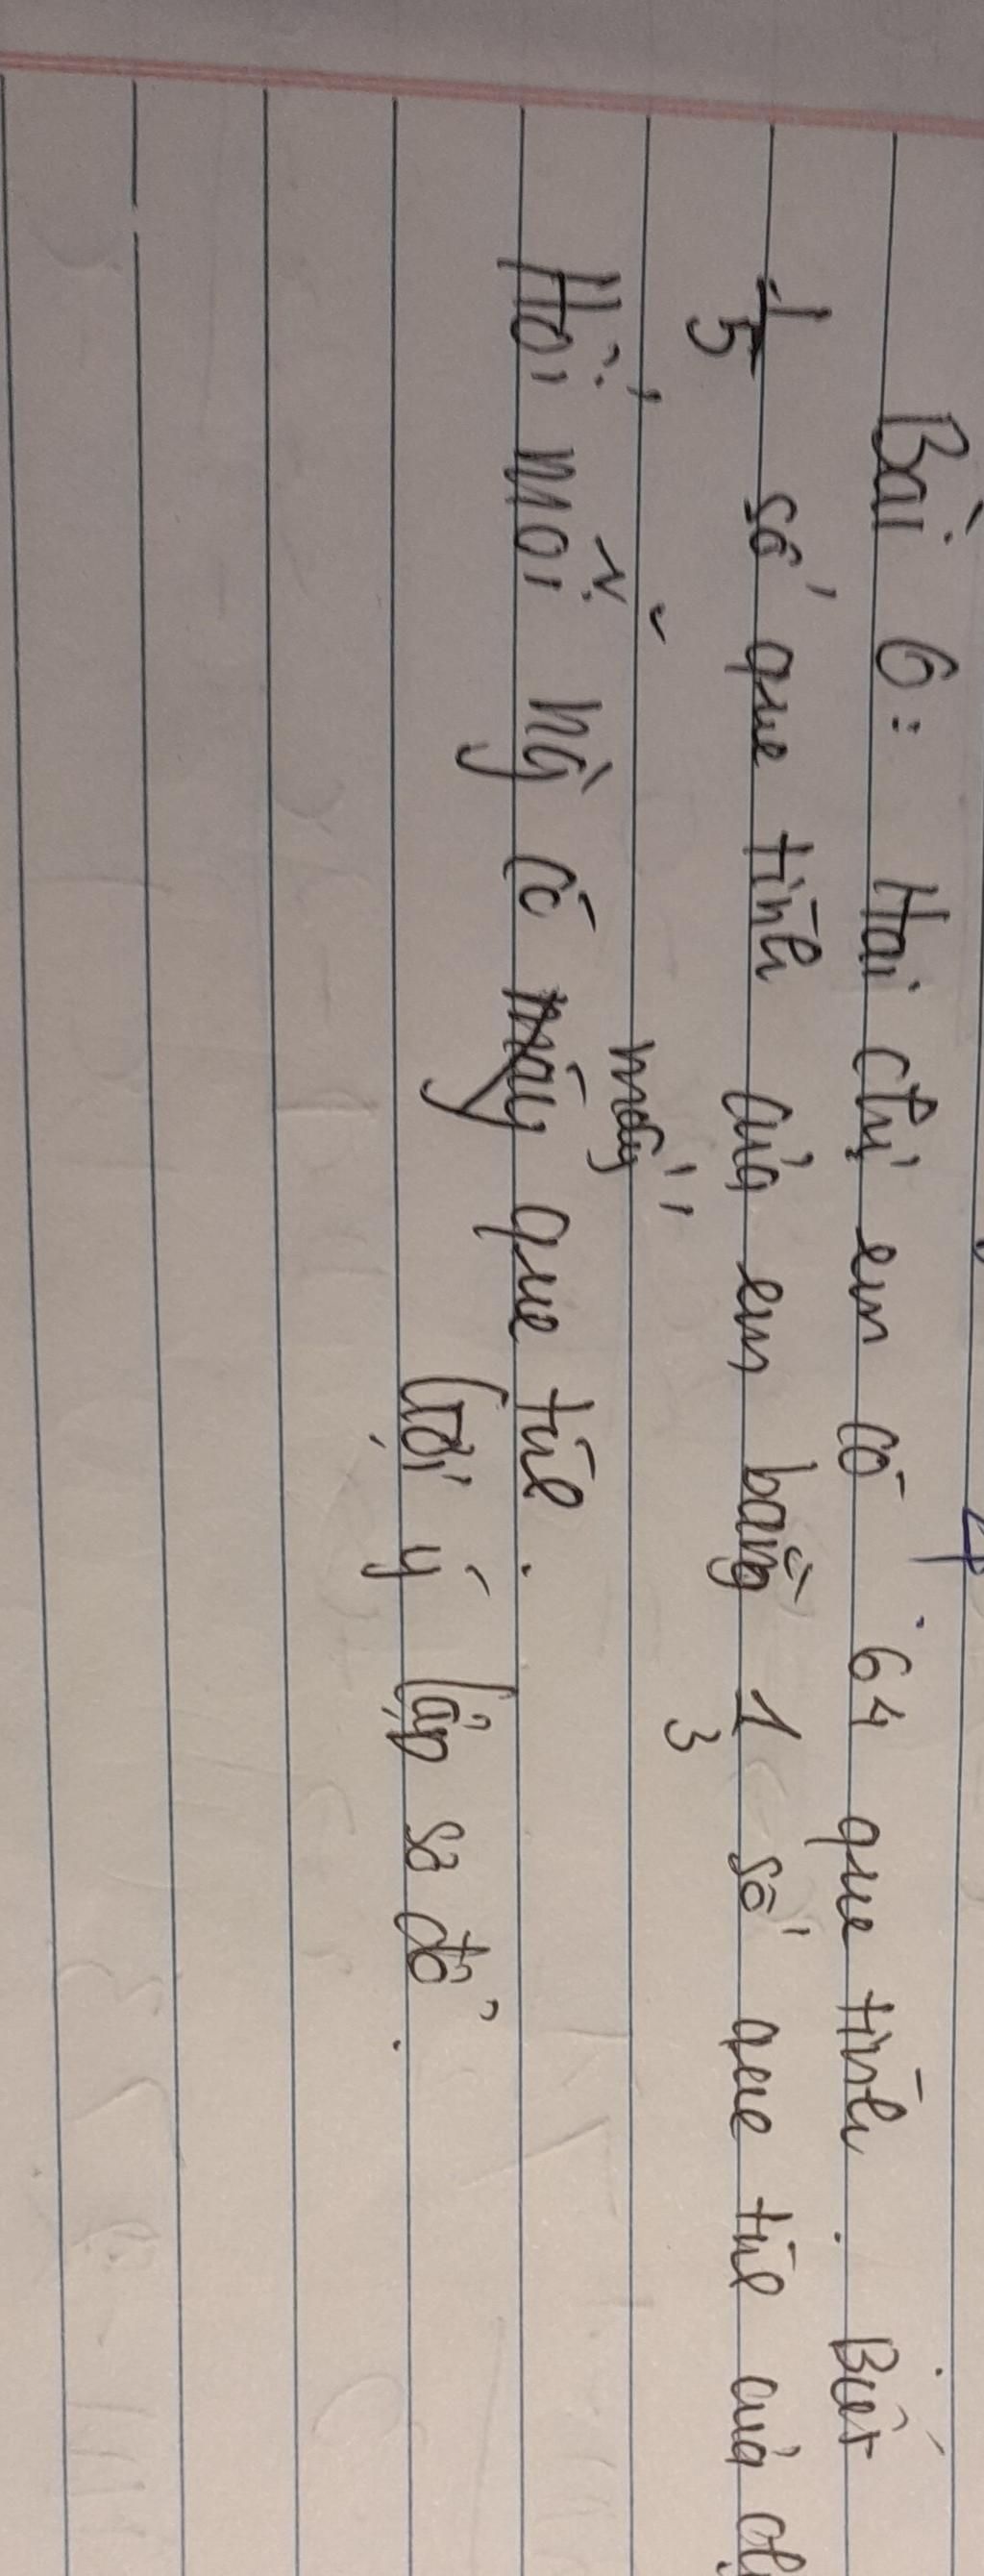 Bài 6: Hai chị em có 64 que tính. Biết
1/5 số que tính của em bằng 1/3 số que tính của
Hỏi mỗi
mấy
có mấy que tính.
Gợi ý lập sơ đồ.